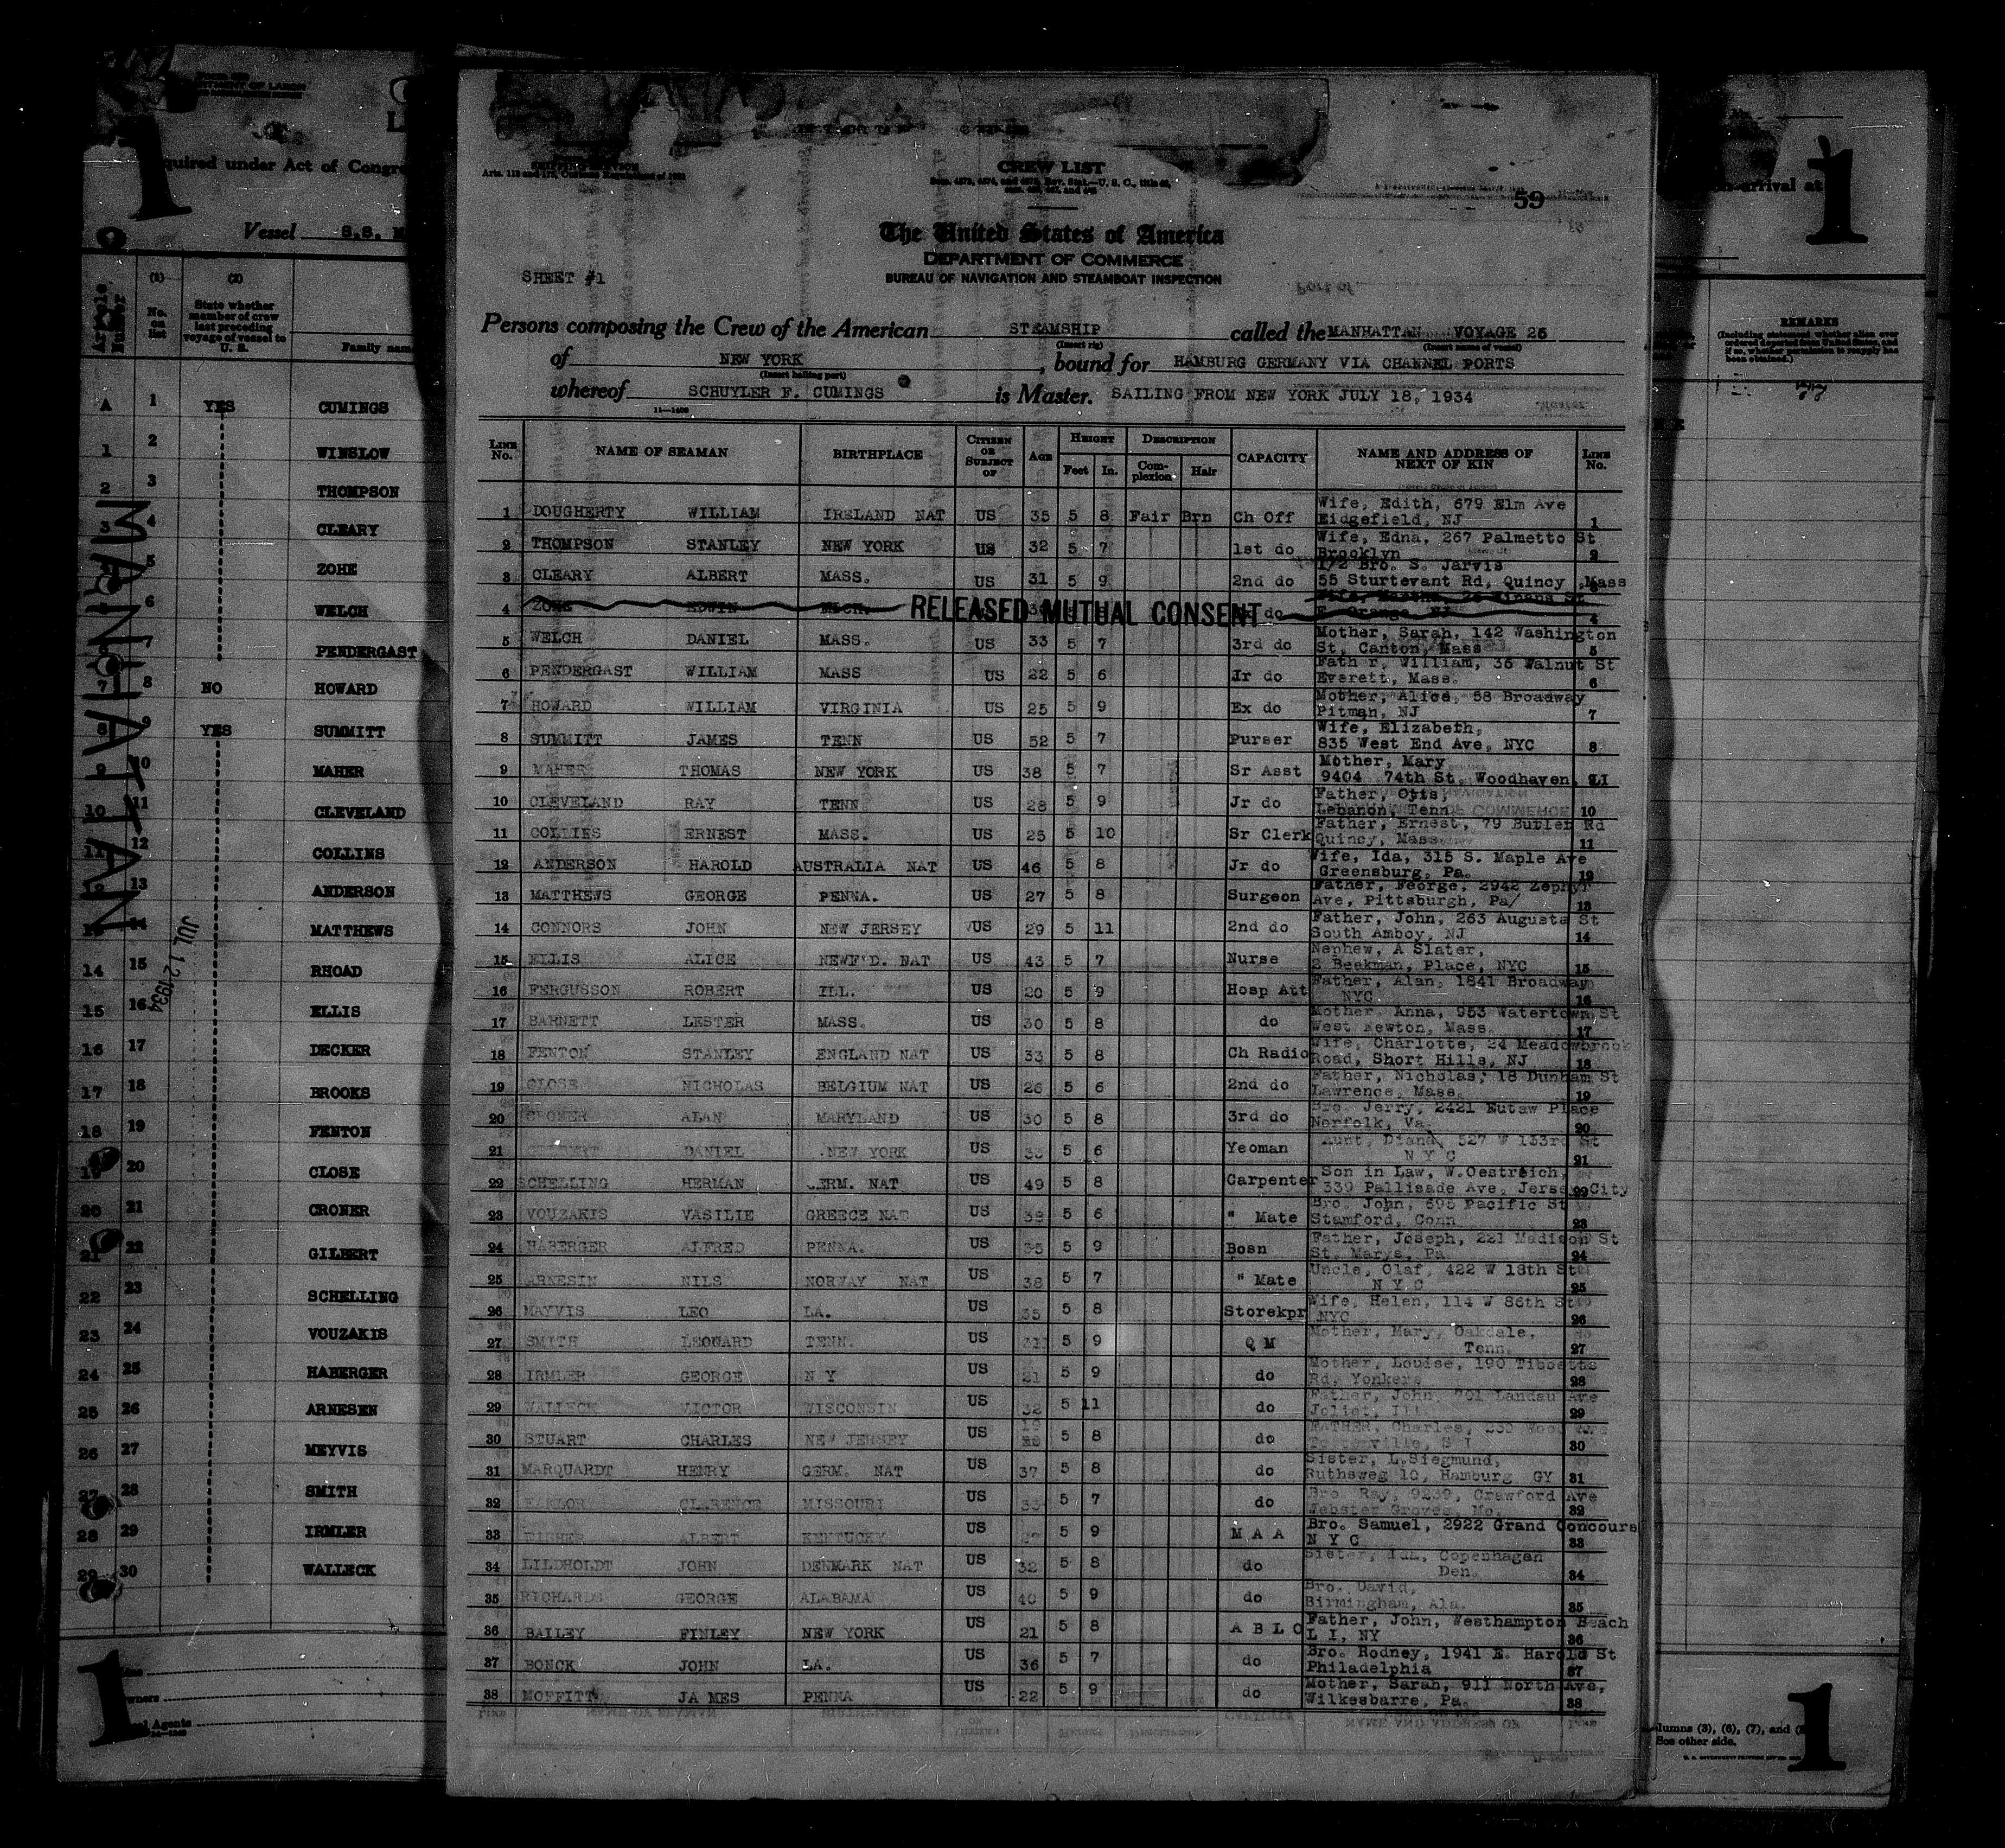 1
quired under Act of Congre
Vessel S.S. M
(1)
No. on list
(2)
State whether member of crew last preceding voyage of vessel to U. S.
Family nam
A 1 YES CUMINGS
1 2 WINSLOW
2 3 THOMPSON
3 4 CLEARY
5 ZOHE
6 WELCH
7 PENDERGAST
7 8 NO HOWARD
8 9 YES SUMMITT
9 10 MAHER
10 11 CLEVELAND
11 12 COLLINS
13 ANDERSON
14 MATTHEWS
14 15 RHOAD
15 16 ELLIS
16 17 DECKER
17 18 BROOKS
18 19 FENTON
19 20 CLOSE
20 21 CRONER
21 22 GILBERT
22 23 SCHELLING
23 24 VOUZAKIS
24 25 HABERGER
25 26 ARNESEN
26 27 MEYVIS
27 28 SMITH
28 29 IRMLER
29 30 WALLECK
MANHATTAN
JUL 12 1934
1
wners
Agents
CREW LIST
59
The United States of America
DEPARTMENT OF COMMERCE
BUREAU OF NAVIGATION AND STEAMBOAT INSPECTION
SHEET #1
Persons composing the Crew of the American STEAMSHIP called the MANHATTAN VOYAGE 25
(Insert rig) (Insert name of vessel)
of NEW YORK, bound for HAMBURG GERMANY VIA CHANNEL PORTS
(Insert hailing port)
whereof SCHUYLER F. CUMINGS is Master. SAILING FROM NEW YORK JULY 18, 1934
LINE No. NAME OF SEAMAN BIRTHPLACE CITIZEN OR SUBJECT OF AGE HEIGHT Feet In. DESCRIPTION Complexion Hair CAPACITY NAME AND ADDRESS OF NEXT OF KIN LINE No.
1 DOUGHERTY WILLIAM IRELAND NAT US 35 5 8 Fair Brn Ch Off Wife, Edith, 679 Elm Ave Ridgefield, NJ 1
2 THOMPSON STANLEY NEW YORK US 32 5 7 1st do Wife, Edna, 267 Palmetto St Brooklyn 2
3 CLEARY ALBERT MASS. US 31 5 9 2nd do 1/2 Bro. S. Jarvis 55 Sturtevant Rd, Quincy, Mass
4 EDWIN RELEASED MUTUAL CONSENT do E. Orange, NJ 4
5 WELCH DANIEL MASS. US 33 5 7 3rd do Mother, Sarah, 142 Washington St, Canton, Mass 5
6 PENDERGAST WILLIAM MASS US 22 5 6 Jr do Fath r, William, 36 Walnut St Everett, Mass. 6
7 HOWARD WILLIAM VIRGINIA US 25 5 9 Ex do Mother, Alice, 58 Broadway Pitman, NJ 7
8 SUMMITT JAMES TENN US 52 5 7 Purser Wife, Elizabeth, 835 West End Ave, NYC 8
9 MAHER THOMAS NEW YORK US 38 5 7 Sr Asst Mother, Mary 9404 74th St. Woodhaven, LI
10 CLEVELAND RAY TENN US 28 5 9 Jr do Father, Otis, Lebanon, Tenn 10
11 COLLIES ERNEST MASS. US 25 5 10 Sr Clerk Father, Ernest, 79 Butler Rd Quincy, Mass. 11
12 ANDERSON HAROLD AUSTRALIA NAT US 46 5 8 Jr do Wife, Ida, 315 S. Maple Ave Greensburg, Pa. 12
13 MATTHEWS GEORGE PENNA. US 27 5 8 Surgeon Father, Feorge, 2942 Zephyr Ave, Pittsburgh, Pa/ 13
14 CONNORS JOHN NEW JERSEY US 29 5 11 2nd do Father, John, 263 Augusta St South Amboy, NJ 14
15 ELLIS ALICE NEWF'D. NAT US 43 5 7 Nurse Nephew, A Slater, 2 Beekman, Place, NYC 15
16 FERGUSSON ROBERT ILL. US 20 5 9 Hosp Att Father, Alan, 1841 Broadway NYC 16
17 BARNETT LESTER MASS. US 30 5 8 do Mother Anna, 953 Watertown St West Newton, Mass. 17
18 FENTON STANLEY ENGLAND NAT US 33 5 8 Ch Radio Wife, Charlotte, 24 Meadowbrook Road, Short Hills, NJ 18
19 CLOSE NICHOLAS BELGIUM NAT US 26 5 6 2nd do Father, Nicholas, 18 Dunham St Lawrence, Mass. 19
20 CRONER ALAN MARYLAND US 30 5 8 3rd do Bro. Jerry, 2421 Eutaw Place Norfolk, Va. 20
21 DANIEL NEW YORK US 5 6 Yeoman Aunt, Diana, 527 W 133rd St N Y C 21
22 SCHELLING HERMAN GERM. NAT US 49 5 8 Carpenter Son in Law, W.Oestreich, 339 Pallisade Ave, Jersey City 22
23 VOUZAKIS VASILIE GREECE NAT US 38 5 6 " Mate Bro. John, 695 Pacific St Stamford, Conn 23
24 HABERGER ALFRED PENNA. US 35 5 9 Bosn Father, Joseph, 221 Madison St St. Marys, Pa 24
25 ARNESIN NILS NORWAY NAT US 38 5 7 " Mate Uncle, Olaf, 422 W 18th St N Y C 25
26 MAYVIS LEO LA. US 35 5 8 Storekpr Wife, Helen, 114 W 86th St NYC 26
27 SMITH LEONARD TENN. US 31 5 9 Q M Mother, Mary, Oakdale, Tenn. 27
28 IRMLER GEORGE N Y US 21 5 9 do Mother, Louise, 190 Tibbetts Rd, Yonkers 28
29 WALLECK VICTOR WISCONSIN US 32 5 11 do Father, John, 701 Landau Ave Joliet, Ill 29
30 STUART CHARLES NEW JERSEY US 5 8 do FATHER, Charles, 30
31 MARQUARDT HENRY GERM. NAT US 37 5 8 do Sister, L.Siegmund, Ruthsweg 10, Hamburg GY 31
32 CLARENCE MISSOURI US 5 7 do Bro. Ray, 9239, Crawford Ave Webster Groves, Mo. 32
33 FISHER ALBERT KENTUCKY US 5 9 M A A Bro. Samuel, 2922 Grand Concours N Y C 33
34 LILDHOLDT JOHN DENMARK NAT US 32 5 8 do Sister, Copenhagen Den. 34
35 RICHARDS GEORGE ALABAMA US 40 5 9 do Bro. David, Birmingham, Ala. 35
36 BAILEY FINLEY NEW YORK US 21 5 8 A B L C Father, John, Westhampton Beach L I, NY 36
37 BONCK JOHN LA. US 36 5 7 do Bro. Rodney, 1941 E. Harold St Philadelphia 37
38 MOFFITT JA MES PENNA US 22 5 9 do Mother, Sarah, 911 North Ave, Wilkesbarre, Pa. 38
arrival at
1
REMARKS
lumns (3), (6), (7), and (8
See other side.
1